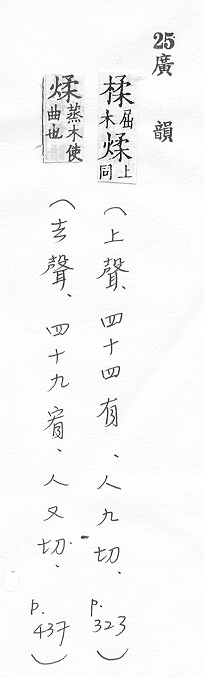 25廣韻
楺屈木煣上同（上聲、四十四有、人九切、p.323）
煣蒸木使曲也（去聲、四十九宥、人又切、p.437）